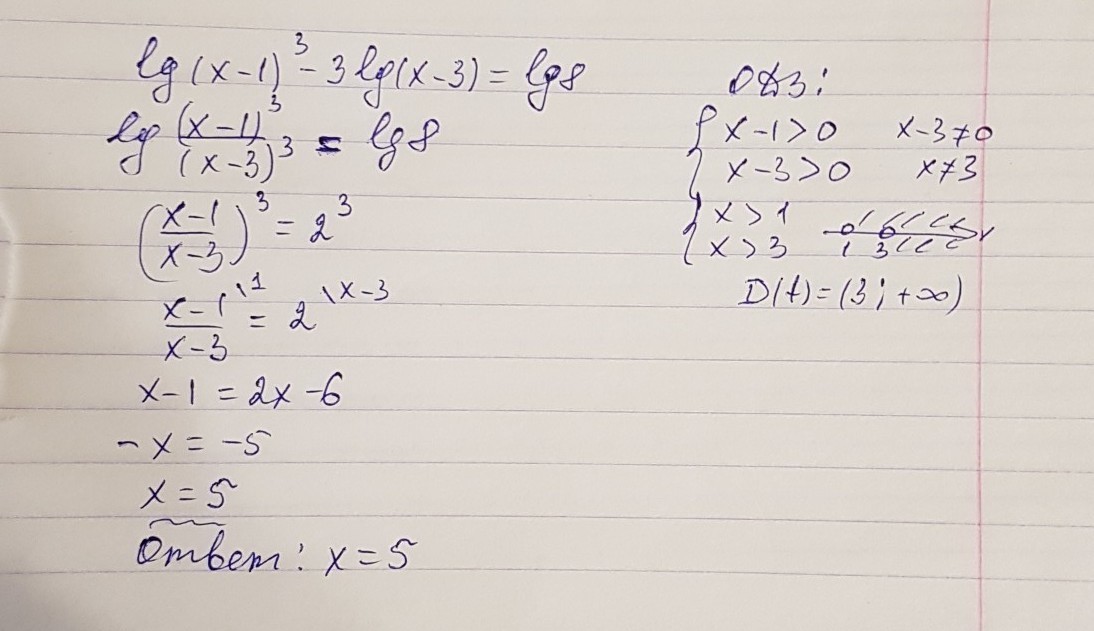 lg (x-1)³ - 3 lg(x-3) = lg 8
lg (x-1)³/(x-3)³ = lg 8
((x-1)/(x-3))³ = 2³
(x-1)/(x-3) \1 = 2 \x-3
x-1 = 2x -6
-x = -5
x = 5
Ответ: x = 5
ОДЗ:
{ x-1>0 x-3≠0
x-3>0 x≠3
{ x>1
x>3 1 3 x
D(f)=(3; +∞)